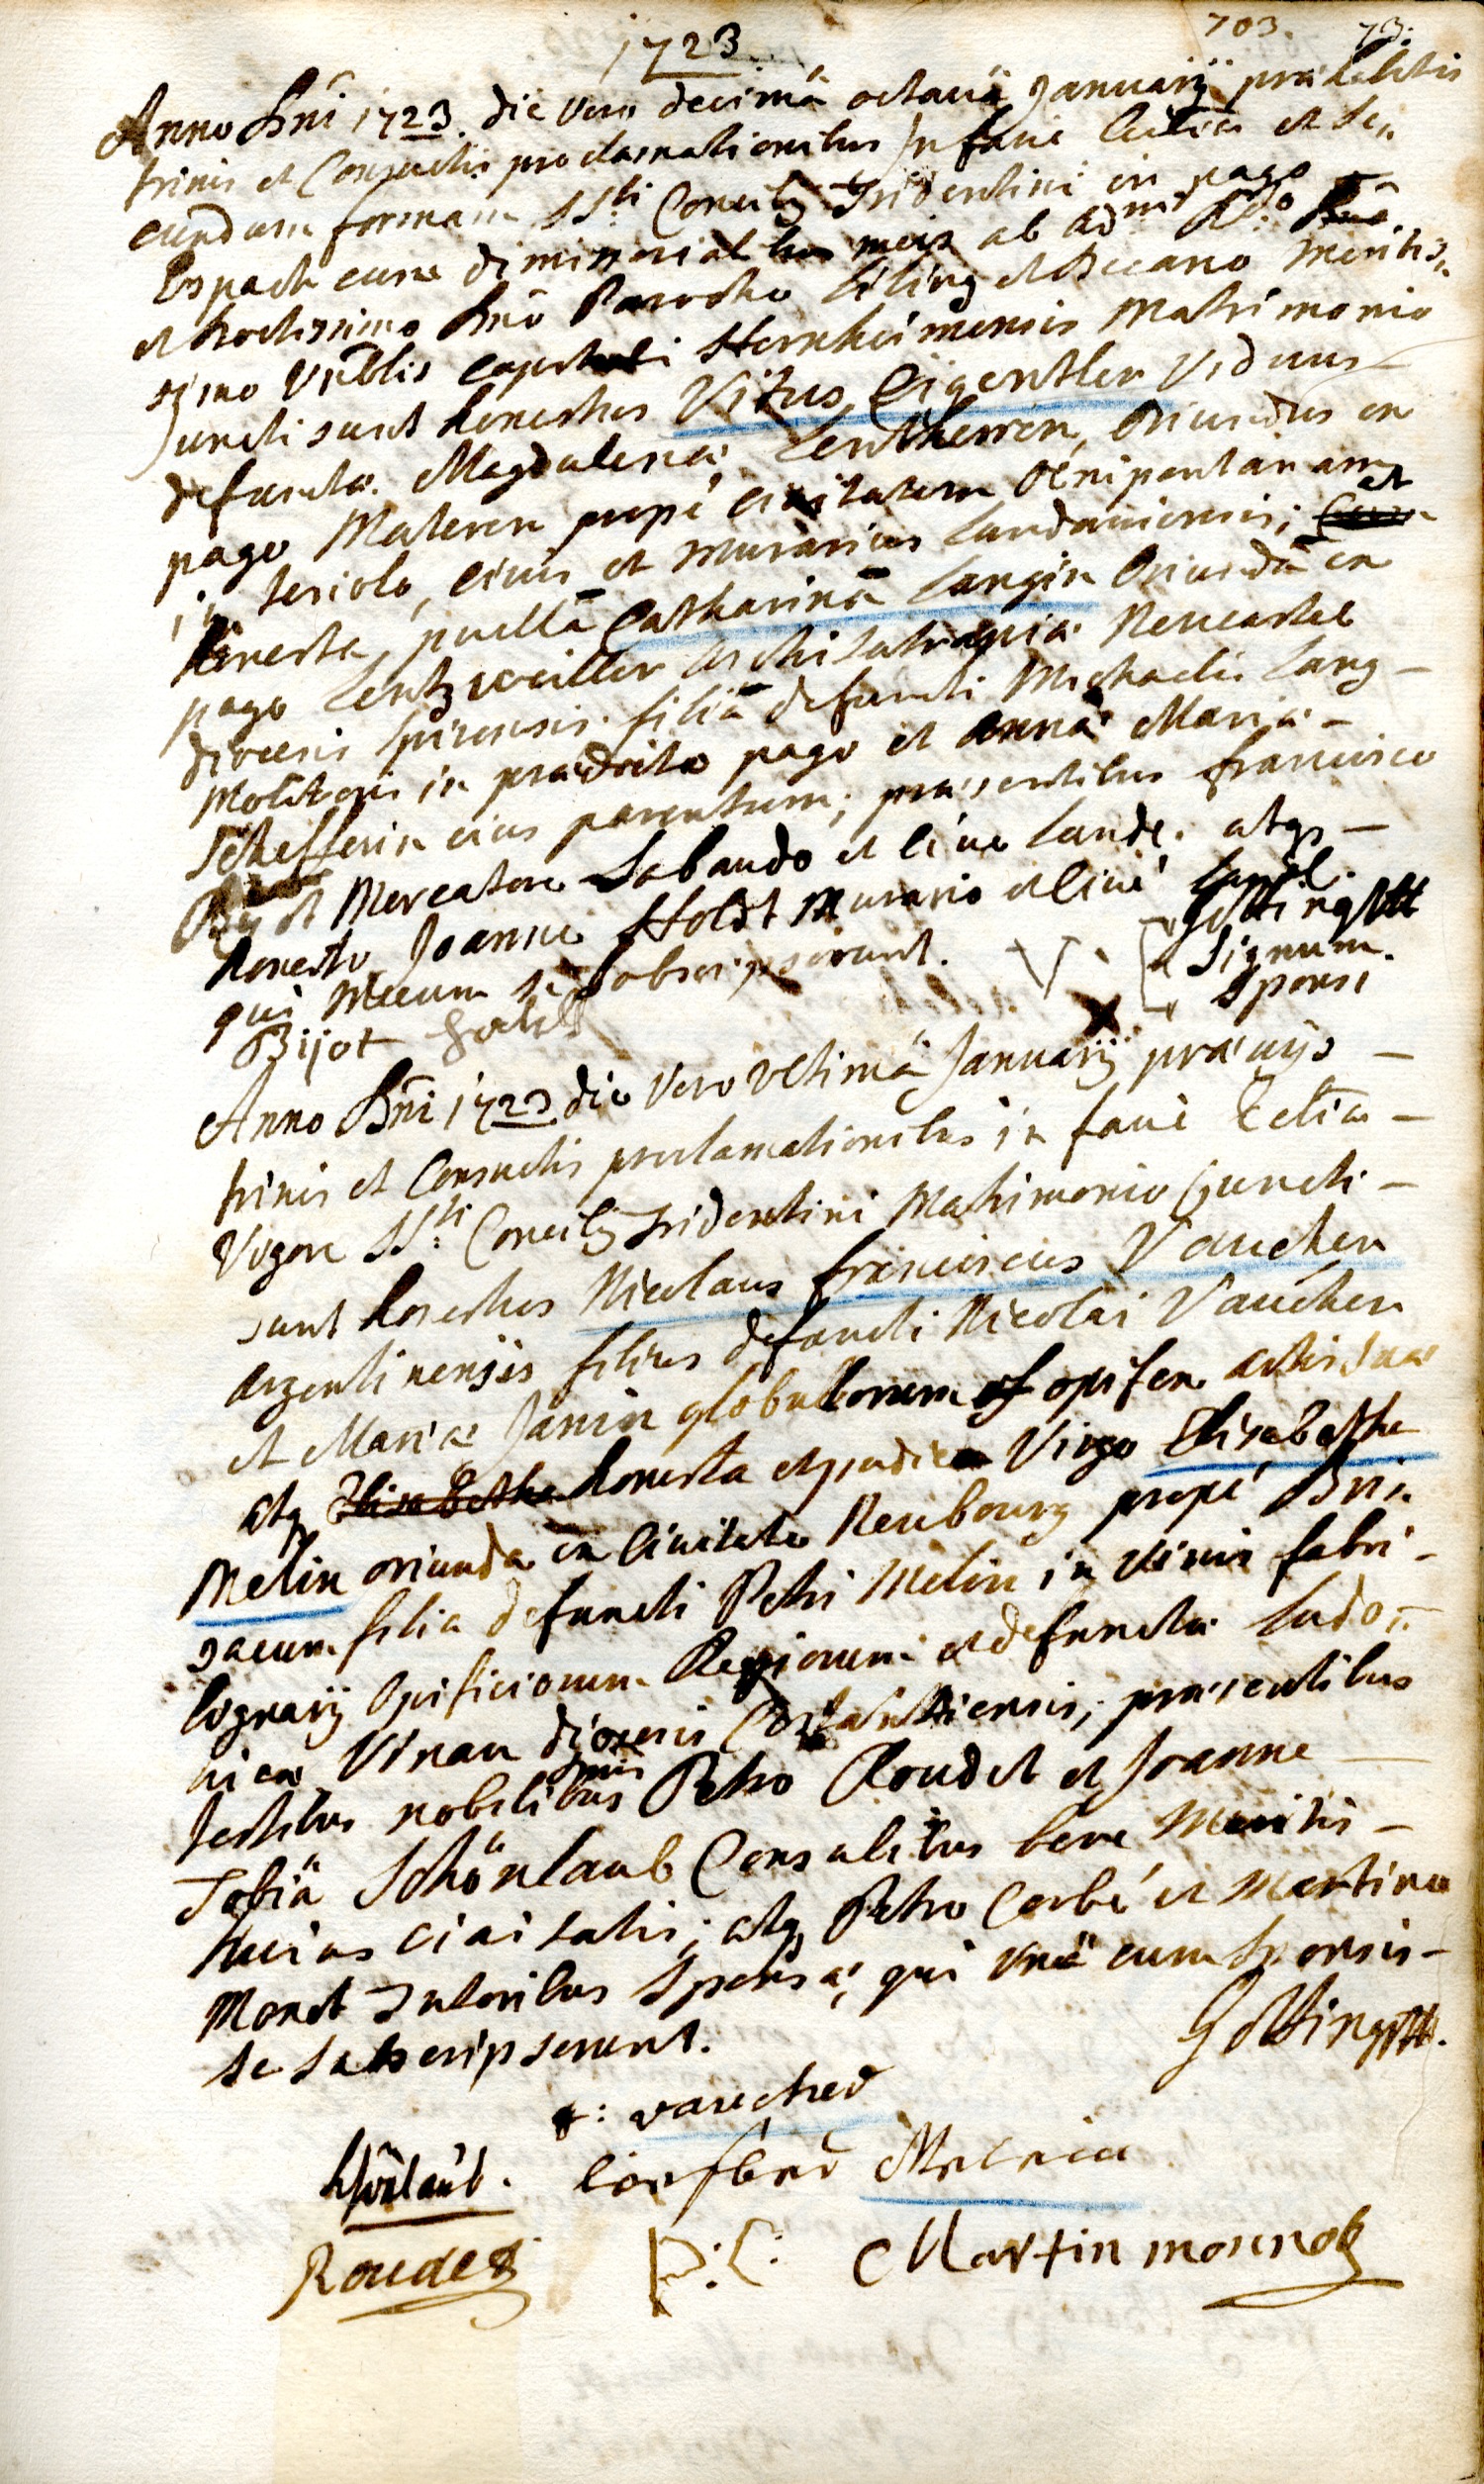 1723.
703. 73.
Anno Dñi 1723. die vero decimâ octavâ Januarij præhabitis
trinis et Consuetis proclamationibus In facie Ecclæ et Se„
cundum formam SSti Concilij Tridentini in pago
Espach cum dimissorialibus meis ab admr Rdo Dno
et Doctissimo Dnô Parocho et Decano meritis„
simo Vnblis Capituli Hernheimensis Matrimonio
Juncti sunt honestus Vitus Eigentler Viduus
defunctæ Magdalenæ Lentherrin, Oriundus ex
pago Materen propè civitatem Œnipontanam
in teriolo, civis et murarius Landaviensis; et
honesta puella Catharina Langin Oriunda ex
pago Lentzweiller Archisatrapiæ Neucastel
diœcesis Spirensis. filia defuncti Michaelis Lang –
Molitoris in prædicto pago et Annæ Mariæ –
Schefferin eius parentum; præsentibus francisco
Bijot Mercatore Sabaudo et cive Lande. atqs –
honesto Joanne Holdt Murario et cive
qui Mecum se Subscripserunt.
Götting
Signum
Sponsi
V X
Bijot
Anno Dñi 1723 die Vero Vltimâ Januarij prævijs –
trinis et Consuetis proclamationibus in facie Ecclæ –
Vigore SSti Concilij Tridentini Matrimonio Juncti –
sunt honestus Nicolaus franciscus Vaucher
argentinensis filius defuncti Nicolai Vaucher
et Mariæ Janin globulorum opifex artis suæ
atq Elisabetha honesta et pudica Virgo Elisabetha
Melin oriunda ex Civitate Neubourg propè Bri„
sacum filia defuncti Petri Melin in vivis fabri –
lignarij Opificiorum Regiorum et defunctæ Ludo„
vicæ Vinan diœcesis Constantiensis; præsentibus
testibus nobilibus Dnis Petro Roudet et Joanne –
Tobiâ Schönlaub Consulibus bene Meritis –
huius civitatis; atq Petro Corbé et Martino
Monet Tutoribus Sponsæ, qui vnâ cum Sponsis –
se subscripserunt.
Götting
: vaucher
Schönlaub. Melein
Roudet P: C: Martin monnot